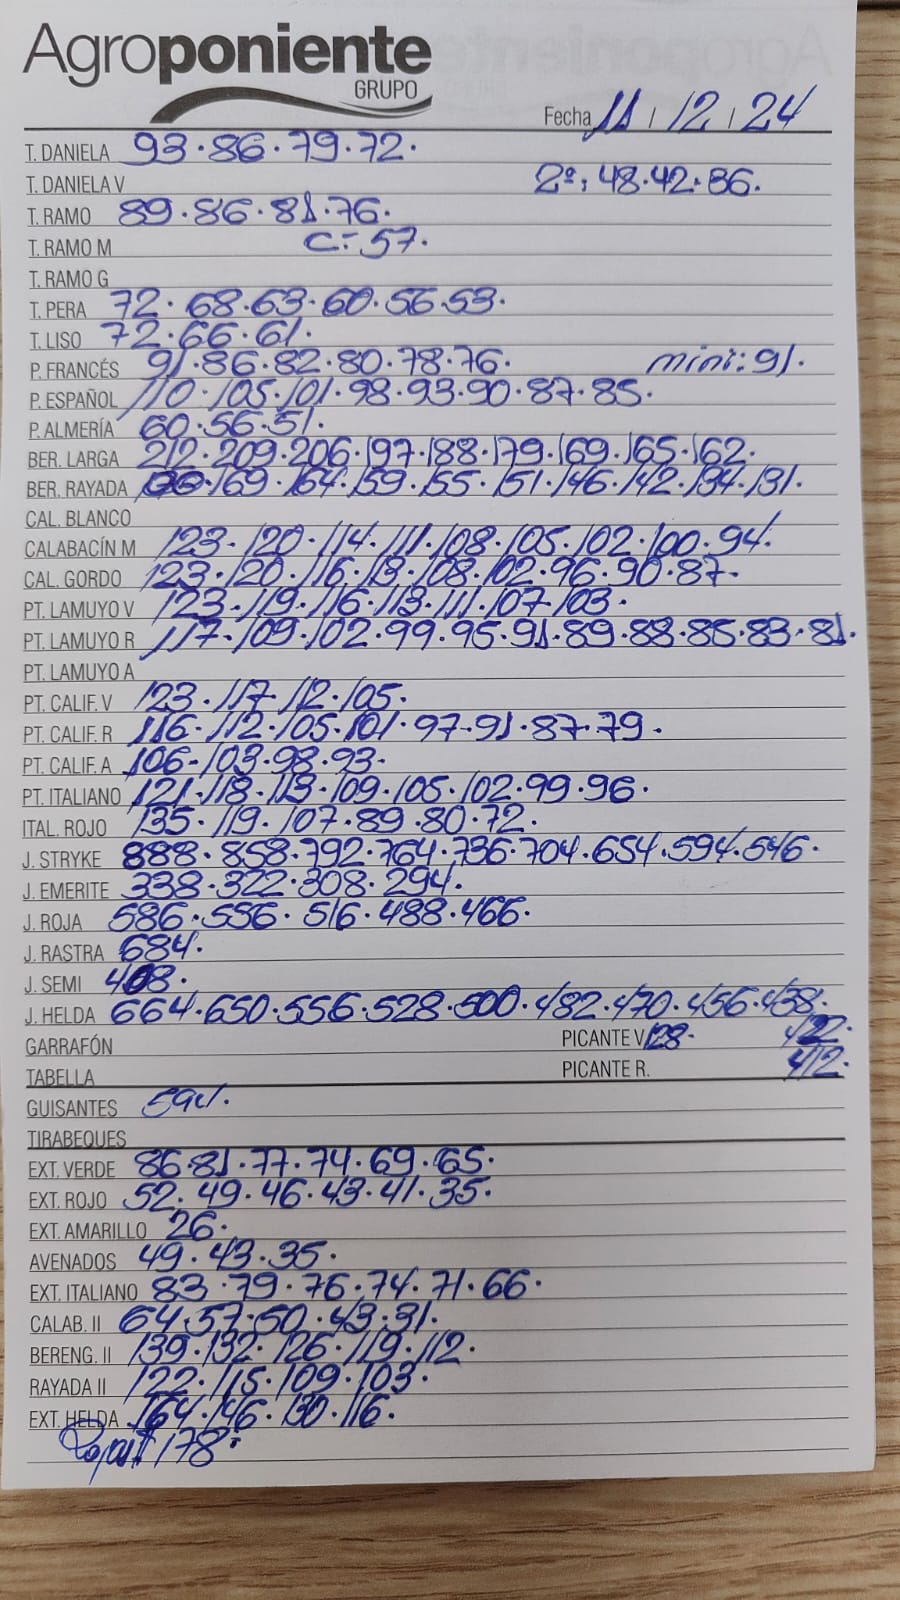 Agroponiente
GRUPO
Fecha 11 / 12 / 24
T. DANIELA 93·86·79·72·
T. DANIELA V 2º: 48·42·36·
T. RAMO 89·86·81·76·
T. RAMO M C- 57·
T. RAMO G
T. PERA 72·68·63·60·56·53·
T. LISO 72·66·61·
P. FRANCÉS 91·86·82·80·78·76· mini: 91·
P. ESPAÑOL 110·105·101·98·93·90·87·85·
P. ALMERÍA 60·56·51·
BER. LARGA 212·209·206·197·188·179·169·165·162·
BER. RAYADA ·169·164·159·155·151·146·142·134·131·
CAL. BLANCO
CALABACÍN M 123·120·114·111·108·105·102·100·94·
CAL. GORDO 123·120·116·113·108·102·96·90·87·
PT. LAMUYO V 123·119·116·113·111·107·103·
PT. LAMUYO R 117·109·102·99·95·91·89·88·85·83·81·
PT. LAMUYO A
PT. CALIF. V 123·117·112·105·
PT. CALIF. R 116·112·105·101·97·91·87·79·
PT. CALIF. A 106·103·98·93·
PT. ITALIANO 121·118·113·109·105·102·99·96·
ITAL. ROJO 135·119·107·89·80·72·
J. STRYKE 888·858·792·764·736·704·654·594·546·
J. EMERITE 338·322·308·294·
J. ROJA 586·556·516·488·466·
J. RASTRA 684·
J. SEMI 408·
J. HELDA 664·650·556·528·500·482·470·456·438·
GARRAFÓN PICANTE V 128· 422·
TABELLA PICANTE R. 412·
GUISANTES 594·
TIRABEQUES
EXT. VERDE 86·81·77·74·69·65·
EXT. ROJO 52·49·46·43·41·35·
EXT. AMARILLO 26·
AVENADOS 49·43·35·
EXT. ITALIANO 83·79·76·74·71·66·
CALAB. II 64·57·50·43·31·
BERENG. II 139·132·126·119·112·
RAYADA II 122·115·109·103·
EXT. HELDA 164·146·130·116·
178·